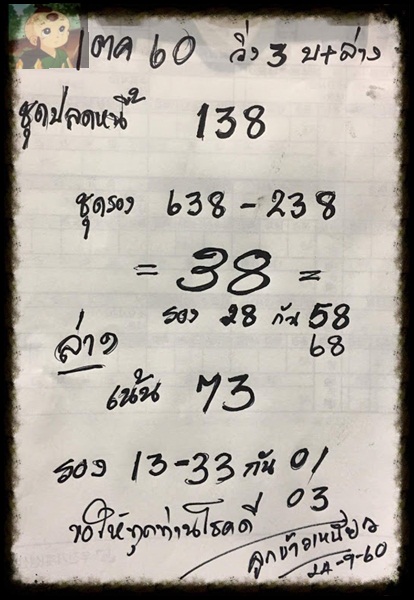 1 ตค 60 วิ่ง 3 บ+ล่าง
ชุดปลดหนี้ 138
ชุดรอง 638 - 238
= 38 =
รอง 28 กัน 58
68
ล่าง
เน้น 73
รอง 13-33 กัน 01
03
ขอให้ทุกท่านโชคดี
ลูกข้าวเหนียว
24-9-60